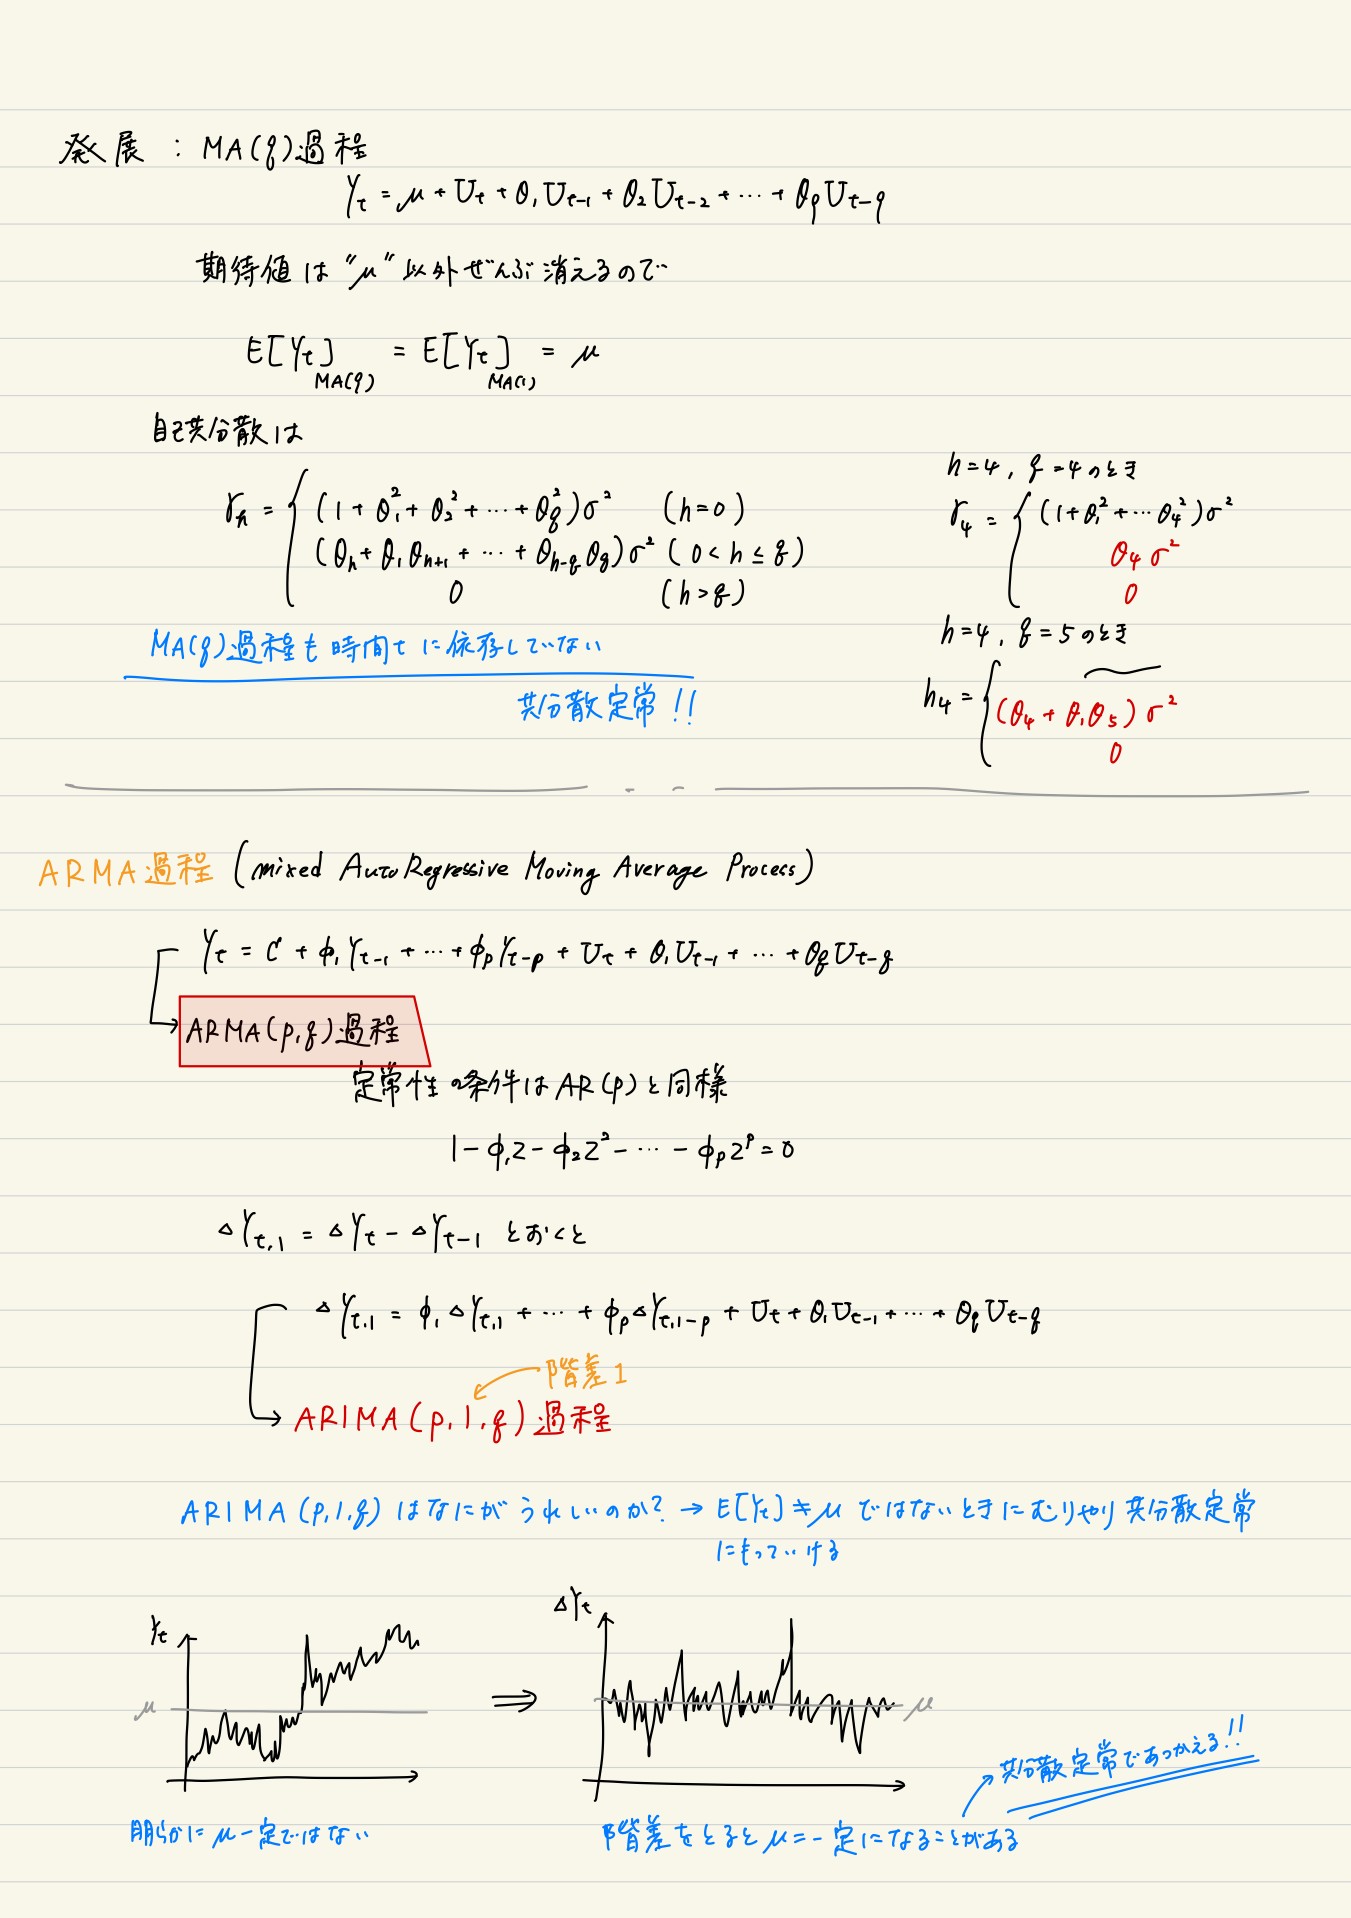 発展 : MA(q)過程
Y_t = μ + U_t + θ_1 U_{t-1} + θ_2 U_{t-2} + ⋯ + θ_q U_{t-q}
期待値は "μ" 以外ぜんぶ消えるので
E[Y_t]_{MA(q)} = E[Y_t]_{MA(1)} = μ
自己共分散は
γ_h = { (1 + θ_1^2 + θ_2^2 + ⋯ + θ_q^2)σ^2 (h=0)
(θ_h + θ_1 θ_{h+1} + ⋯ + θ_{h-q} θ_q)σ^2 (0 < h ≤ q)
0 (h > q)
MA(q)過程も時間tに依存していない
共分散定常!!
h=4, q=4のとき
γ_4 = { (1+θ_1^2+⋯θ_4^2)σ^2
θ_4 σ^2
0
h=4, q=5のとき
h_4 = {
(θ_4 + θ_1 θ_5)σ^2
0
ARMA過程 (mixed AutoRegressive Moving Average Process)
Y_t = C + φ_1 Y_{t-1} + ⋯ + φ_p Y_{t-p} + U_t + θ_1 U_{t-1} + ⋯ + θ_q U_{t-q}
ARMA(p,q)過程
定常性の条件はAR(p)と同様
1 - φ_1 z - φ_2 z^2 - ⋯ - φ_p z^p = 0
△Y_{t,1} = △Y_t - △Y_{t-1} とおくと
△Y_{t,1} = φ_1 △Y_{t,1} + ⋯ + φ_p △Y_{t,1-p} + U_t + θ_1 U_{t-1} + ⋯ + θ_q U_{t-q}
階差1
ARIMA(p,1,q)過程
ARIMA(p,1,q)はなにがうれしいのか? → E[Y_t] ≠ μ ではないときにむりやり共分散定常
にもっていける
Y_t
μ
⇒
△Y_t
μ
明らかにμ一定ではない
階差をとるとμ=一定になることがある
共分散定常であつかえる!!